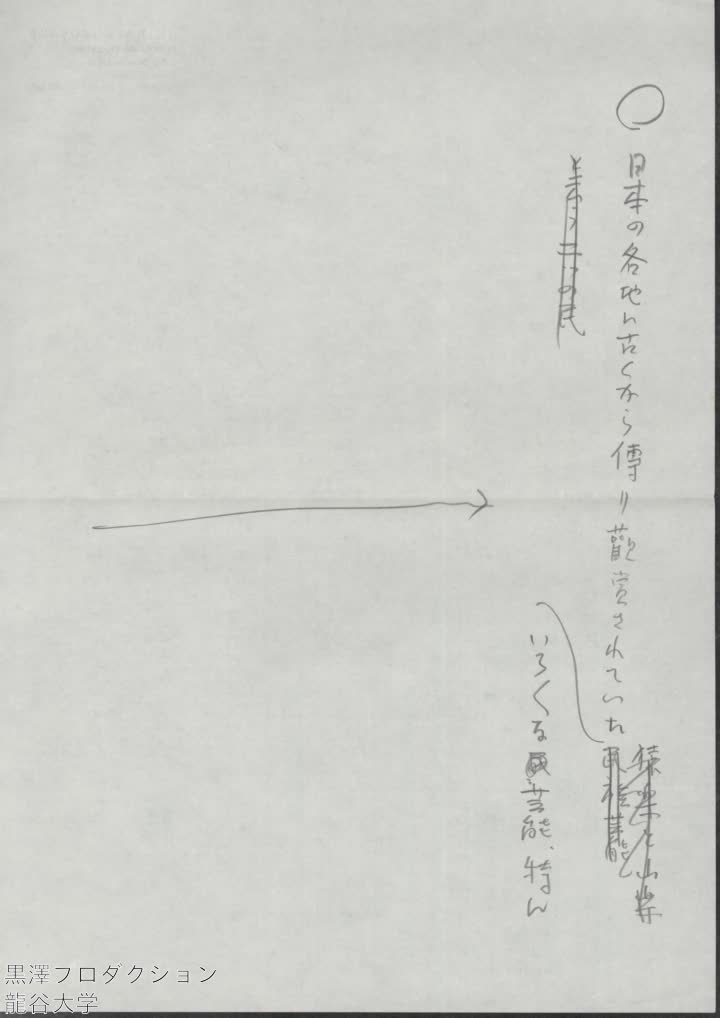 〇 日本の各地に古くから傳り観賞されていた
猿楽と
民俗藝能
いろ〱な芸能、特に
の民
黒澤プロダクション
龍谷大学